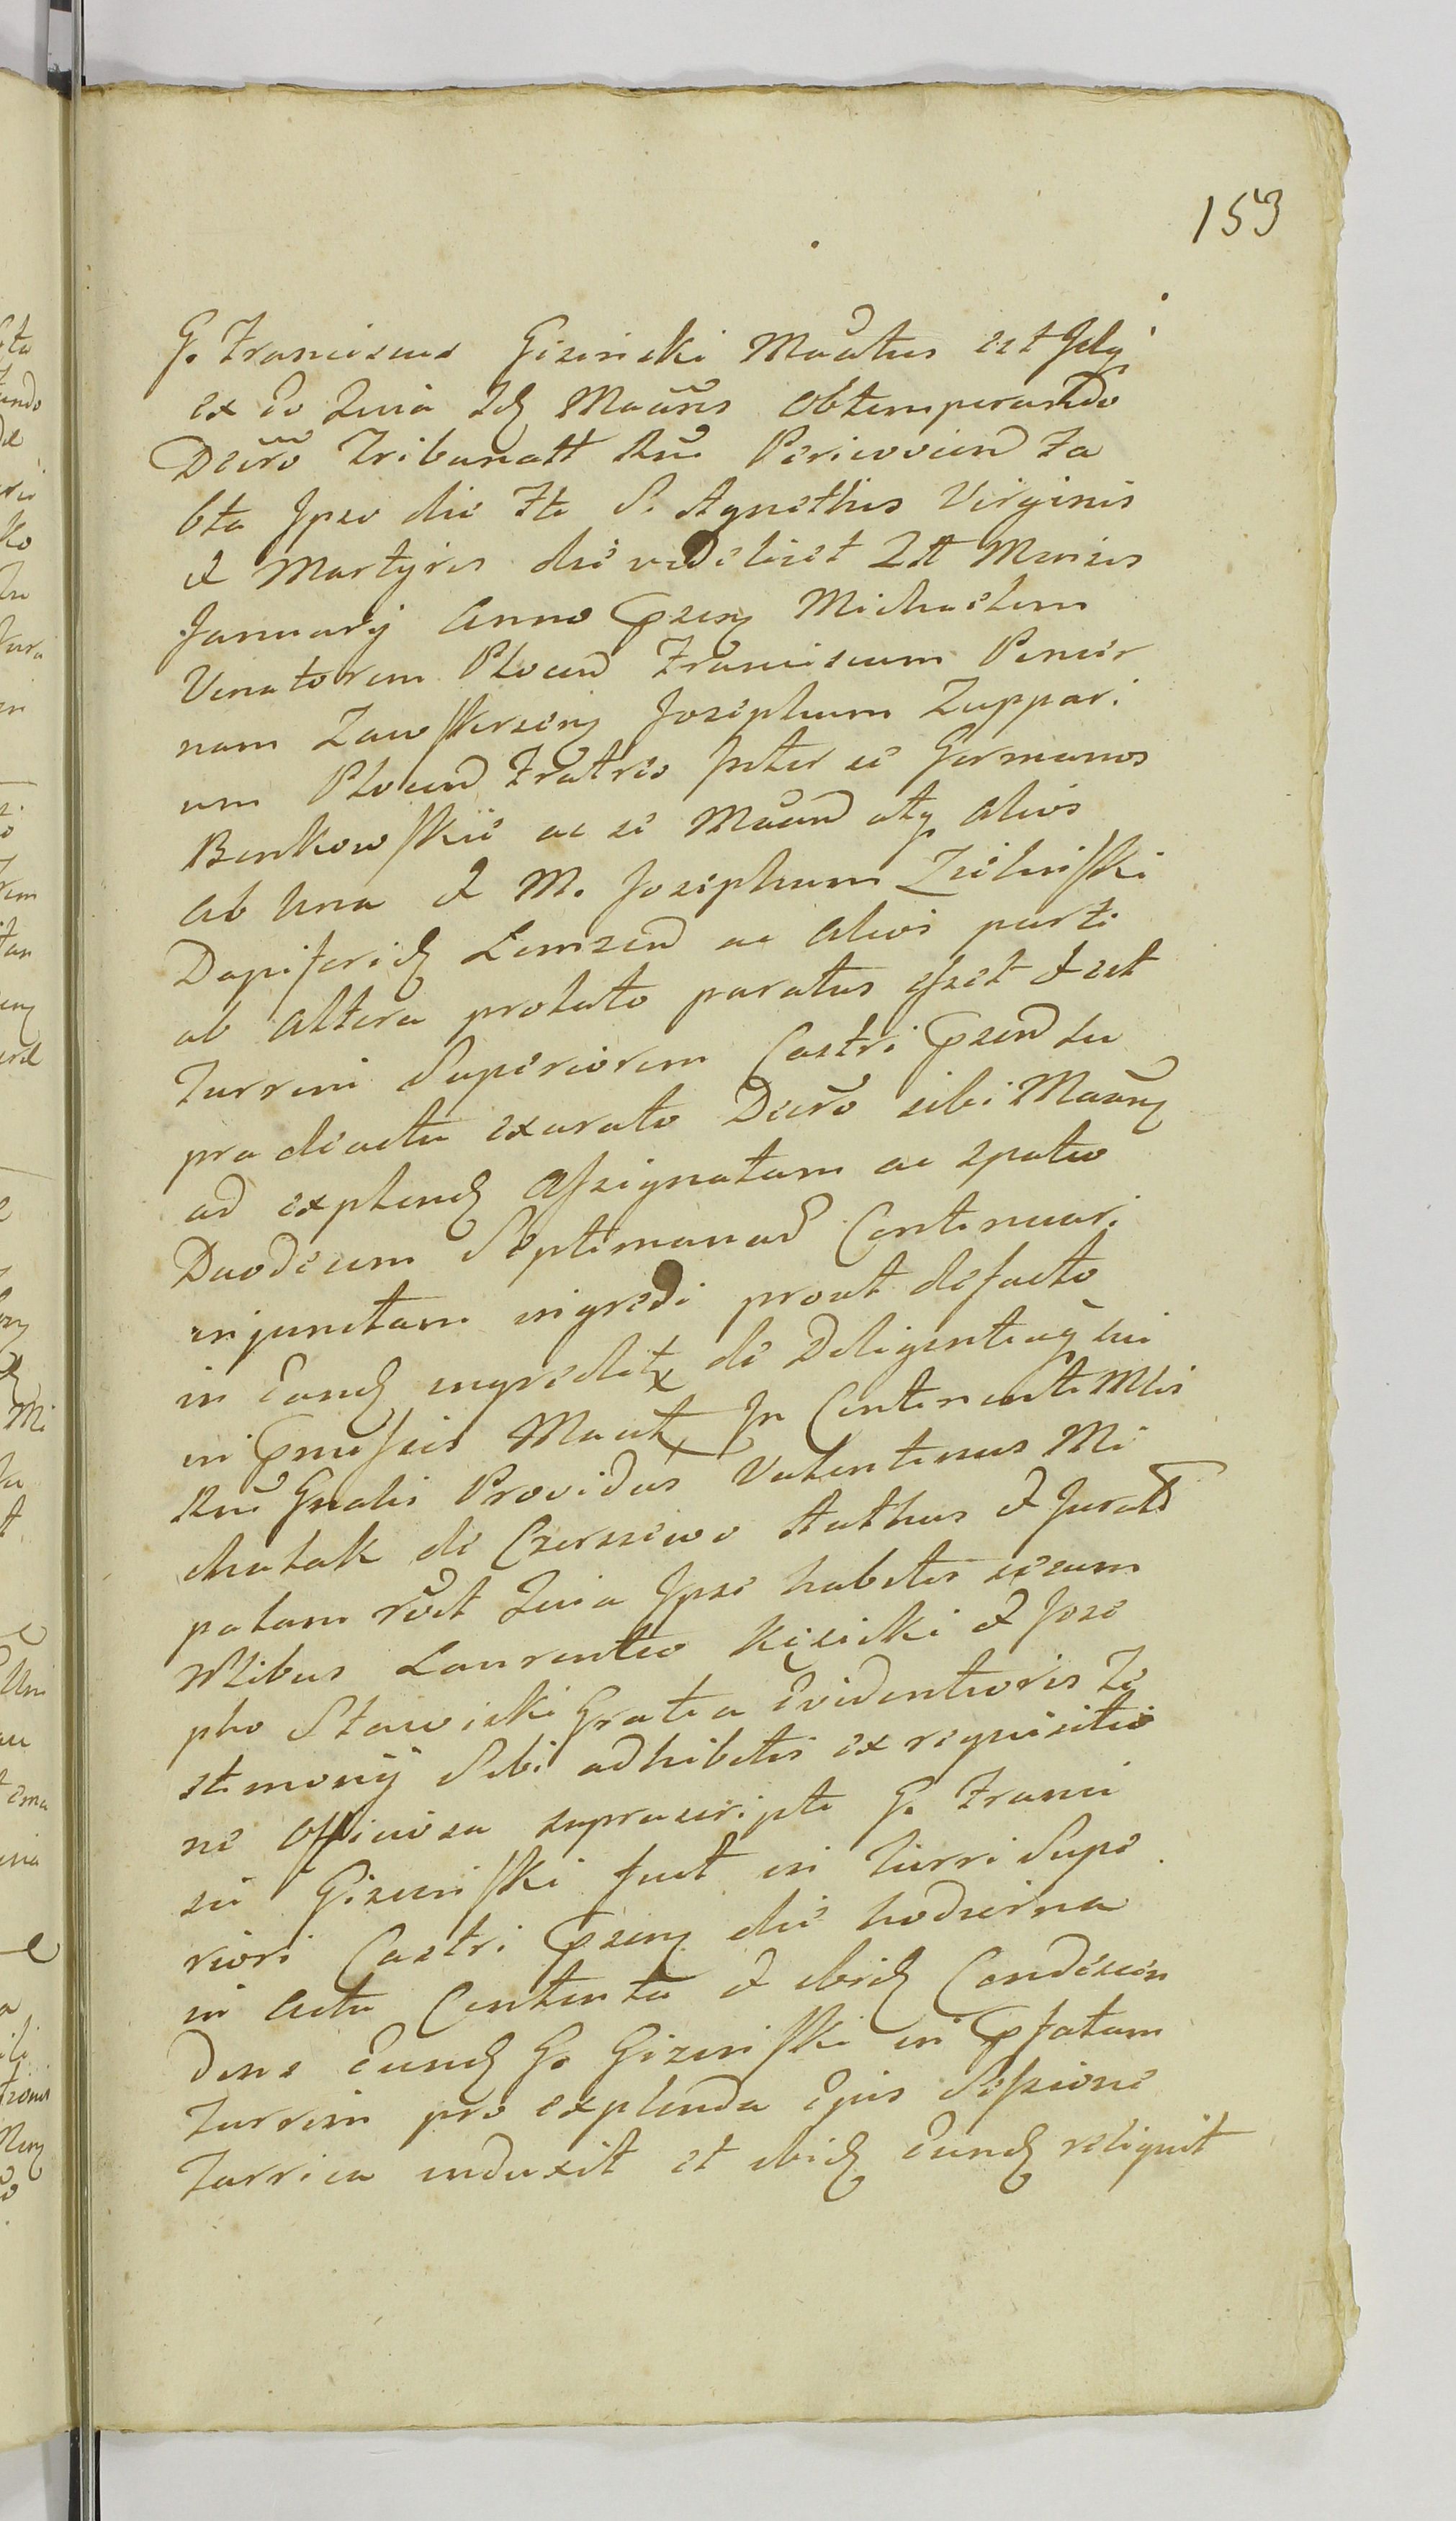 153
G. Franciscus Gizinski Maātus est Jdq
ex eo Quia Idq Maāns obtemperando
Decrō Tribunatt Rnī Periovien Fa
bta Ipso die Fti S. Agnethis Virginis
et Martyris die videlicet 21 Mensis
January Anno Pszen Michaelem
Venatorem Plocen Franciscum Pincer
nam Zawskrzen Josephum Zuppari
um Plocen Fratres Inter se Germanos
Benkowskie ac se Maan atq alios
ab Una et M. Josephum Zielinski
Dapiferidę Lomzen ac alios parti
ab altera prolato paratus esset et est
Turrim Superiorem Castri Pszen su
pra de actu exarato Decrō sibi Maānę
ad explendę assignatam ac spatio
Duodecim Septimanaȓ Continuari
injunctam ingredi prout defacto
in Eandę ingredit de Diligentiaq sui
in Pmissis Maat In Continenti Mlis
Rnī Gnalis Providus Valentinus Mi
chalak de Czerniewo Authus et Jurats
palam rōct Quia Ipse habitis secum
Nlibus Laurentio Kęsicki et Jose
pho Stawiski Gratia Evidentioris Te
stimonÿ Sibi adhibitis ex requisitio
ne Officiosa suprascripti G. Franci
sci Gizinski fuit in Turri Supe
riori Castri Pszen die hodierna
in Actu Contenta et ibidę Condescen
dens Eundę G. Gizinski in Pfatam
Turrim pro explenda Ejus Sessione
Turrica induxit et ibidę Eundę reliquit